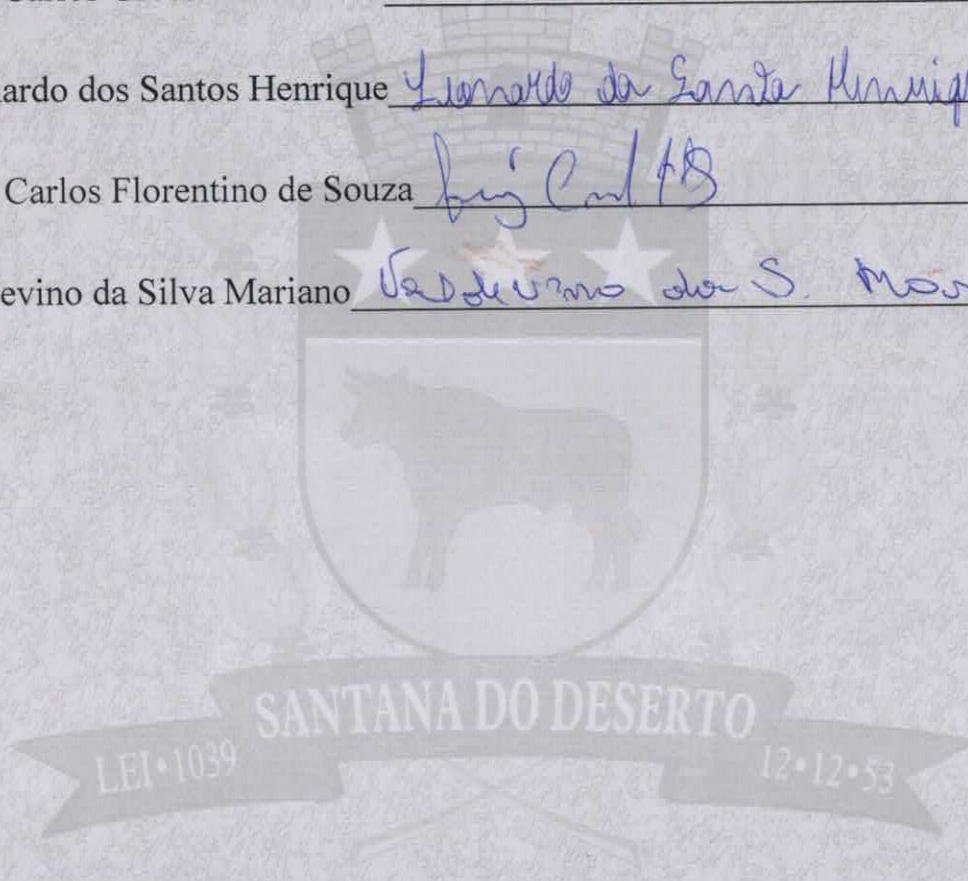 ardo dos Santos Henrique Leonardo dos Santos Henriq
Carlos Florentino de Souza
evino da Silva Mariano Valdevino da S. Mar
SANTANA DO DESERTO
LEI•1039 12•12•53